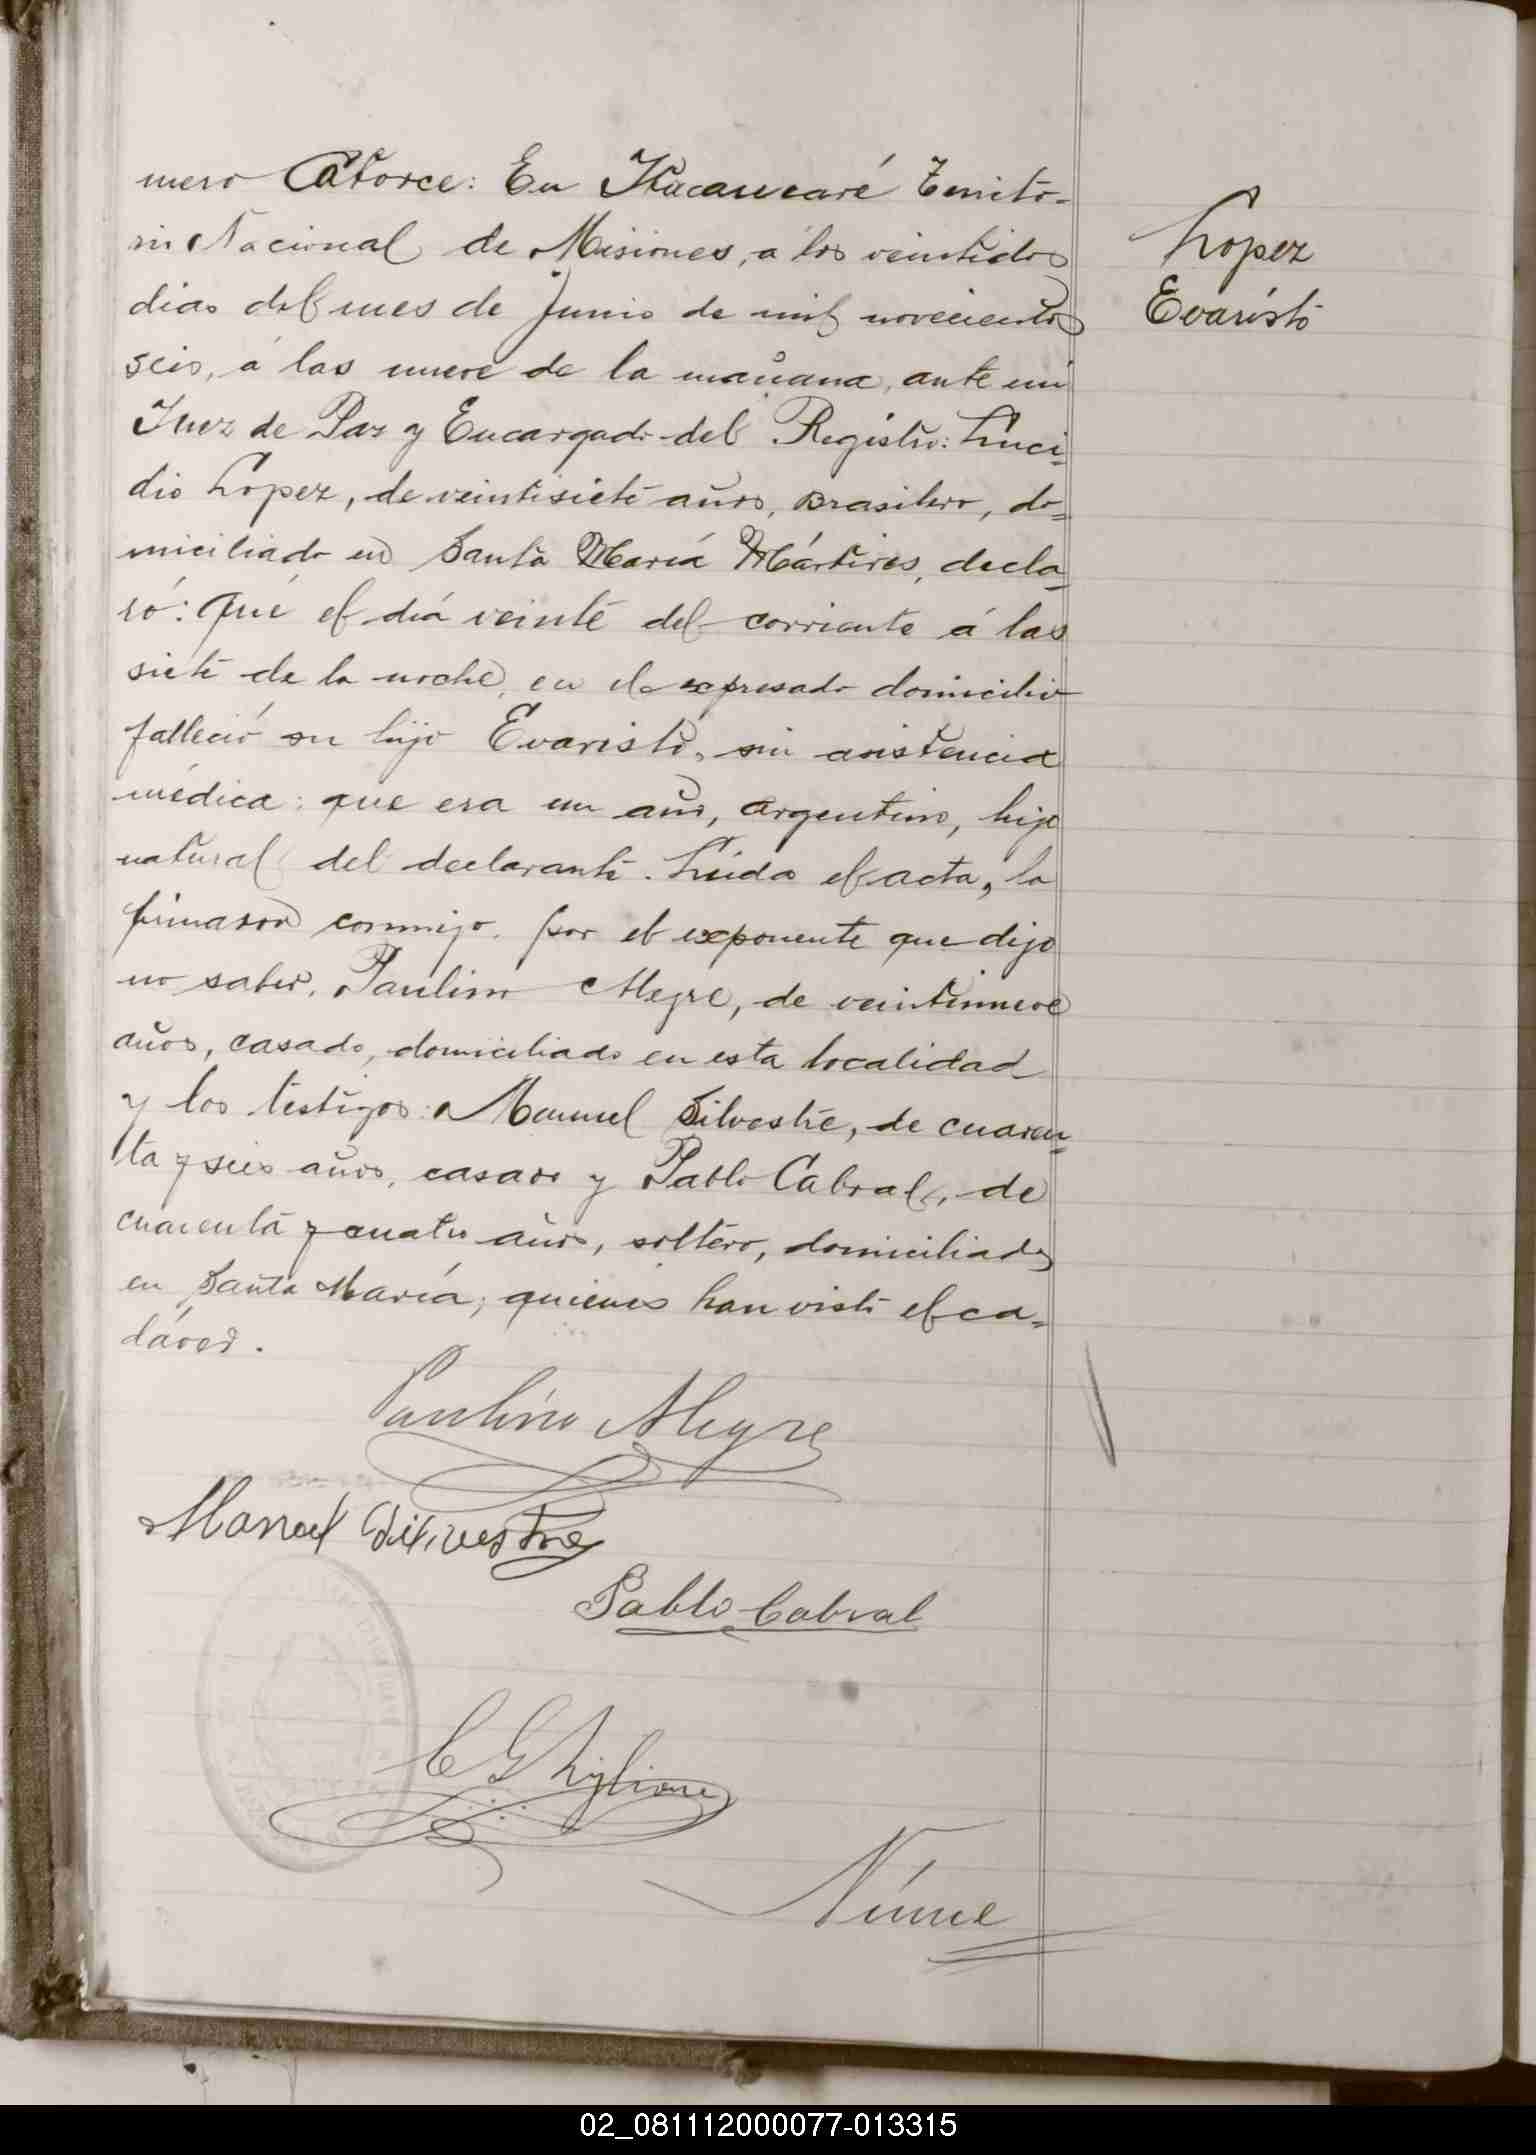 mero Catorce: En Itacaruaré Territo-
rio Nacional de Misiones, a los veintidos
dias del mes de Junio de mil novecientos
seis, á las nueve de la mañana, ante mi
Juez de Paz y Encargado del Registro: Luci-
dio Lopez, de veintisiete años, Brasilero, do-
miciliado en Santa María Mártires, decla-
ró: Que el día veinte del corriente á las
siete de la noche, en el expresado domicilio
falleció su hijo Evaristo, sin asistencia
médica: que era un año, argentino, hijo
natural del declarante. Leida el acta, la
firmaron conmigo, por el exponente que dijo
no saber, Paulino Alegre, de veintinueve
años, casado, domiciliado en esta localidad
y los testigos: Manuel Silvestre, de cuaren-
ta y seis años, casado y Pablo Cabral, de
cuarenta y cuatro años, soltero, domiciliados
en Santa María; quienes han visto el ca-
dáver.
Lopez
Evaristo
Paulino Alegre
Manuel Silvestre
Pablo Cabral
C Ghiglione
Núme
02_081112000077-013315